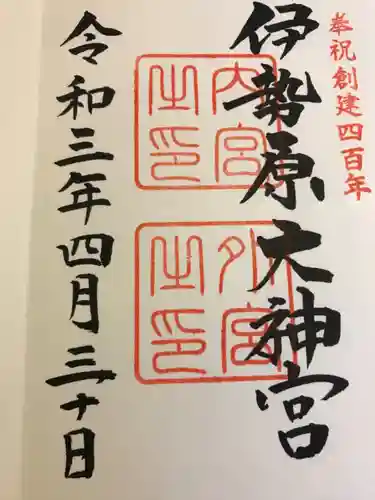 奉祝創建四百年
伊勢原大神宮
内宮之印
外宮之印
令和三年四月三十日